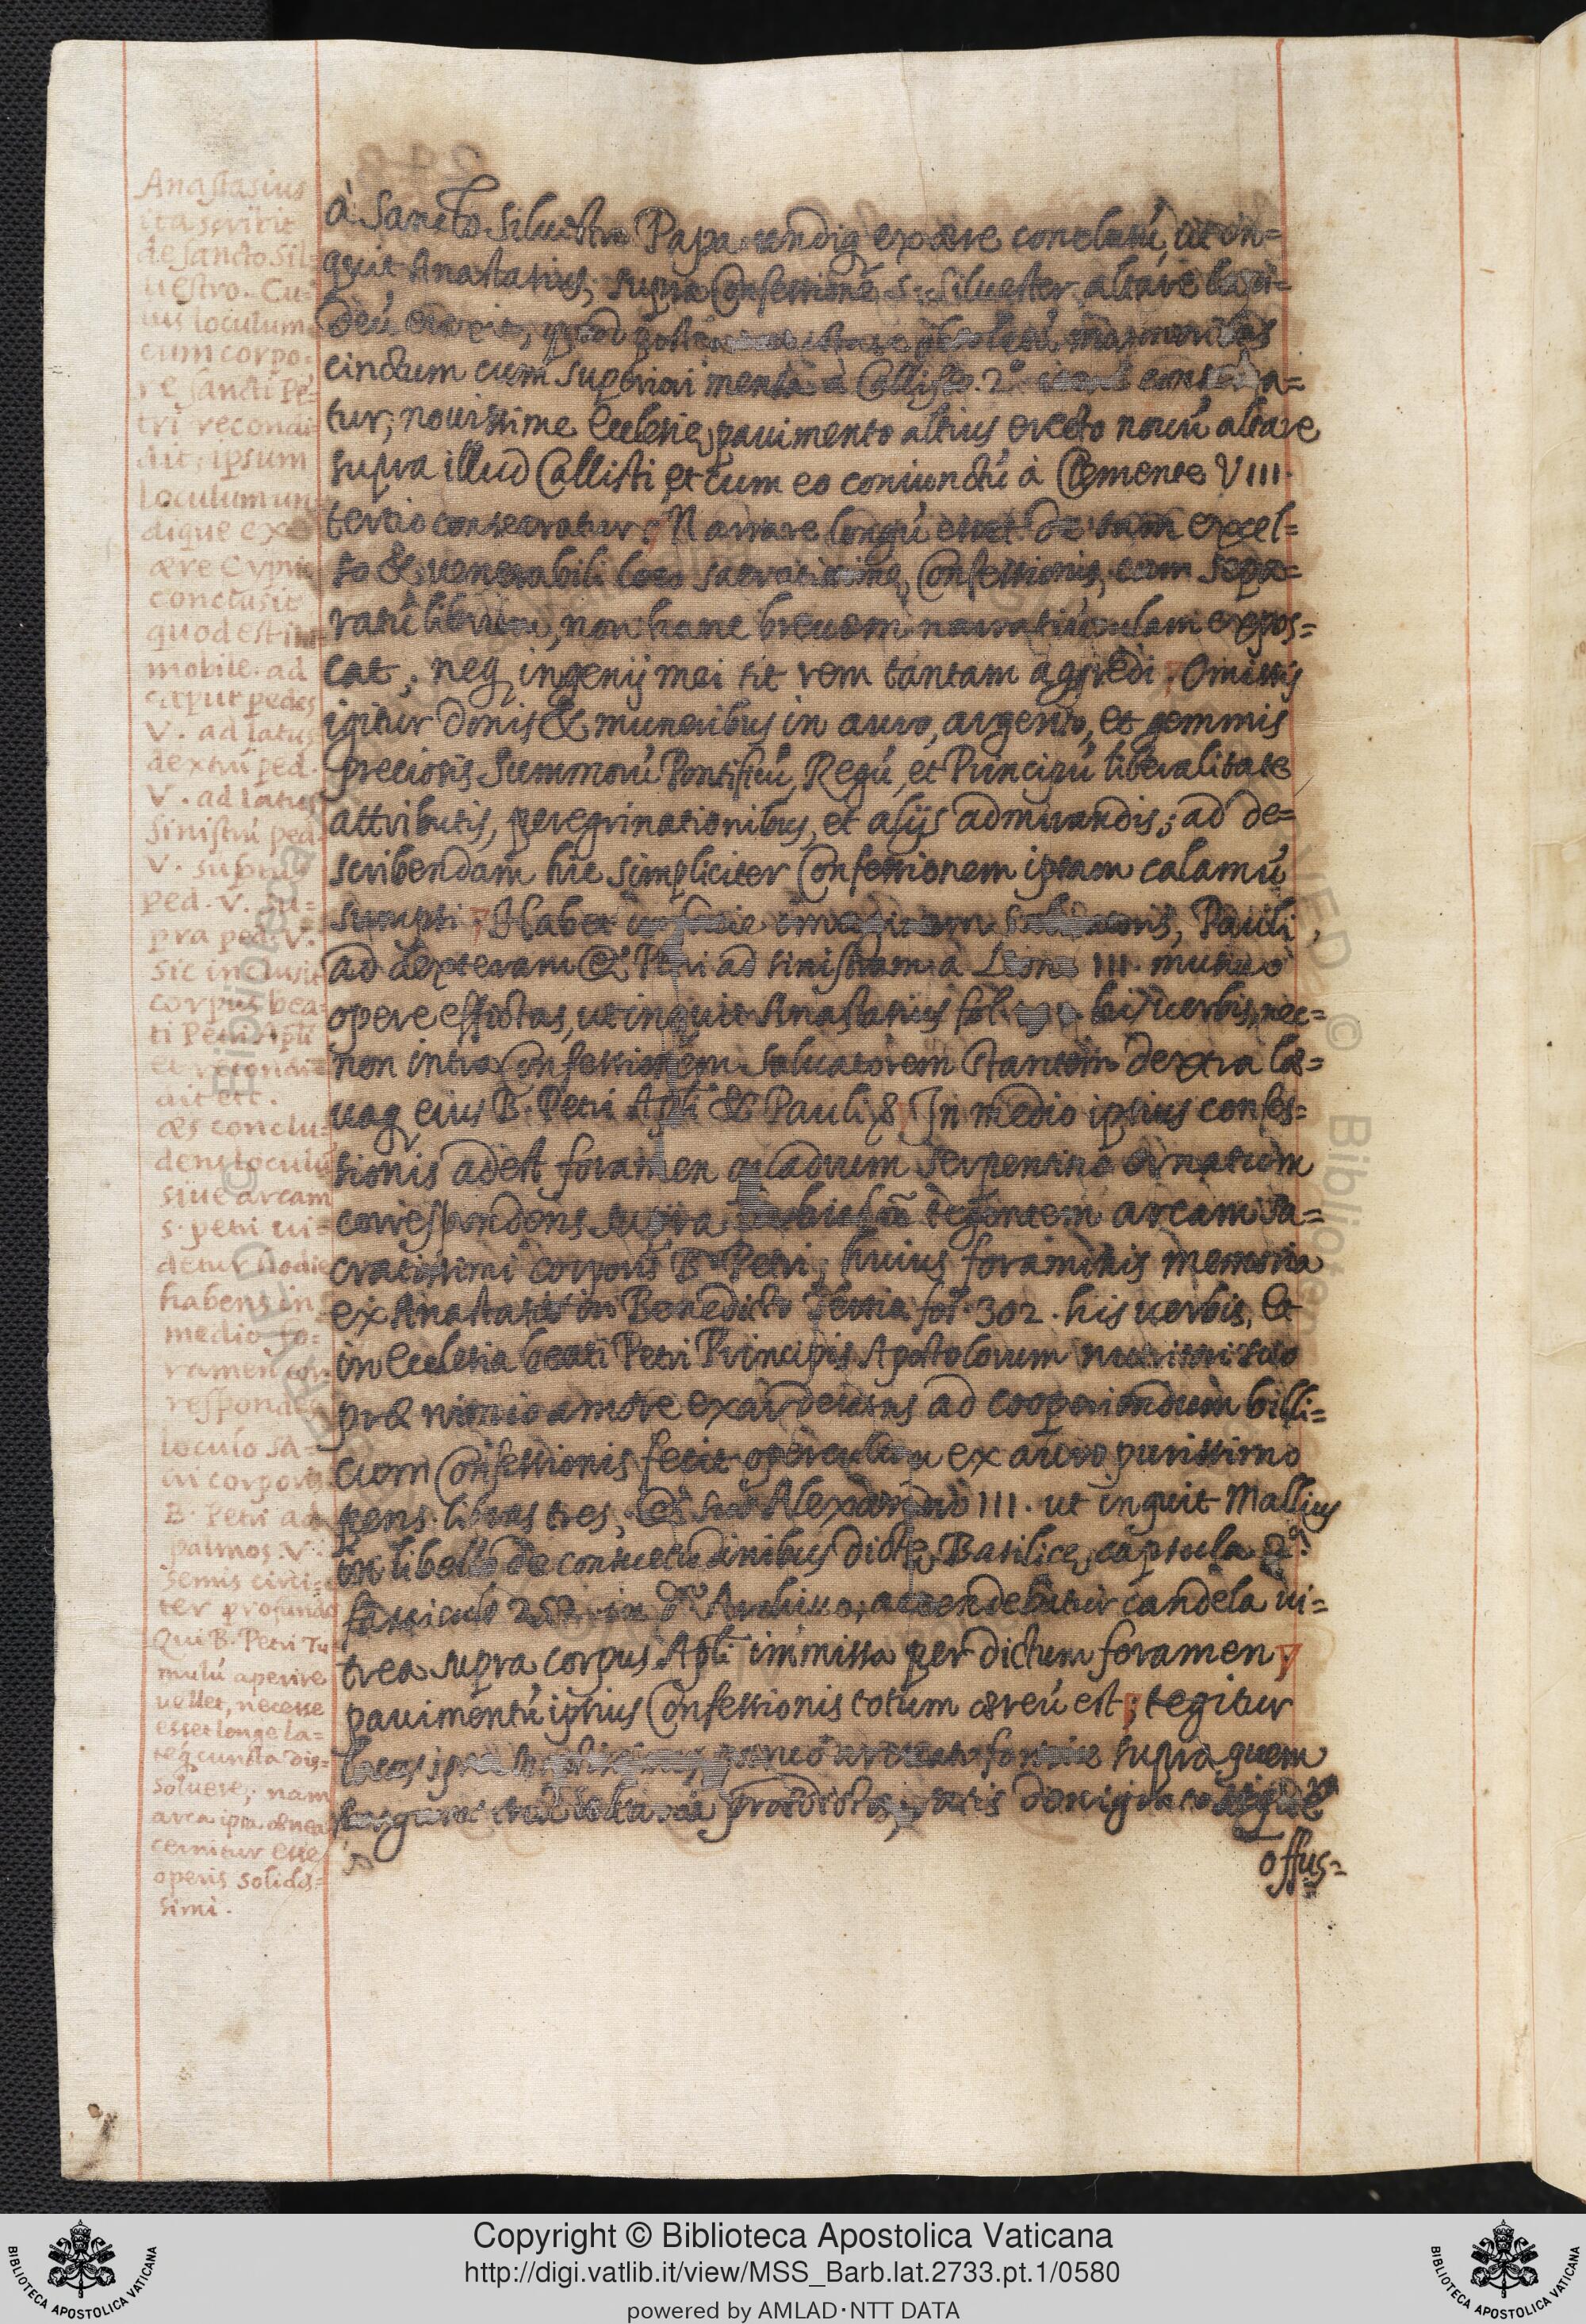 Anastasius
ita scribit
de sancto Sil=
uestro. Cu=
ius loculum
cum corpo=
re sancti Pe=
tri recondi=
dit, ipsum
loculum un=
dique ex
ære Cyprio
conclusit
quod est im=
mobile. ad
caput pedes
V. ad latus
dextrū ped.
V. ad latus
sinistrū ped.
V. subtus
ped. V. su=
pra ped. V.
sic inclusit
corpus bea=
ti Petri Apli
et recondi=
dit ett.
æs conclu=
dens loculū
siue arcam
s. petri ui=
detur hodie
habens in
medio fo=
ramen cor=
respondens
loculo sa=
cri corporis
B. Petri ad
palmos. V.
semis circi=
ter profundo
Qui B. Petri Tu=
mulū aperire
uellet, necesse
esset longe la=
teq cuncta dis=
soluere, nam
arca ipsa ænea
cernitur esse
operis solidis=
simi.
à Sancto Siluestro Papa undiq ex ære conclusū, ut in=
quit Anastasius, supra Confessionē S. Siluester altare lapi=
deū marmoribus
cinctum cum superiori mensa à Callisto 2º consecra=
tur, nouissime Ecclesiæ pauimento altius erecto nouū altare
supra illud Callisti et cum eo coniunctū à Clemente VIII.
tertio consecratur. Narrare longū esset de tam excel=
so & uenerabili loco sacratissimæ Confessionis, cum sepa=
ratū librum, non hanc breuem narratiunculam expos=
cat, neq ingenij mei sit rem tantam aggredi. Omissis
igitur donis & muneribus in auro, argento, et gemmis
preciosis Summorū Pontificū, Regū, et Principū liberalitate
attributis, peregrinationibus, et alijs admirandis; ad de=
scribendam hic simpliciter Confessionem ipsam calamū
sumpsi. Habet imaginem Saluatoris, Pauli,
ad dexteram & Petri ad sinistram a Leone III. musiuo
opere effictas, ut inquit Anastasius fol. his uerbis, nec=
non intra Confessionem Saluatorem stantem dextra læ=
uaq eius B. Petri Apli & Pauli & In medio ipsius confes=
sionis adest foramen quadrum serpentino ornatum
correspondens supra tegentem arcam sa=
cratissimi corporis B. Petri, huius foraminis memoria
ex Anastasio in Benedicto Tertio fol. 302. his uerbis, Et
in Ecclesia beati Petri Principis Apostolorum
præ nimio amore exardescens ad cooperiendum billi=
cum Confessionis fecit operculum ex auro purissimo
pens. libras tres, Et sub Alexandro III. ut inquit Mallius
in libello de consuetudinibus dictæ Basilicæ, capsula 2ª
fasciculo in dº Archiuo, accendebatur candela ui=
trea supra corpus Apli immissa per dictum foramen
pauimentū ipsius Confessionis totum æreū est; tegitur
locus supra quem
offus=